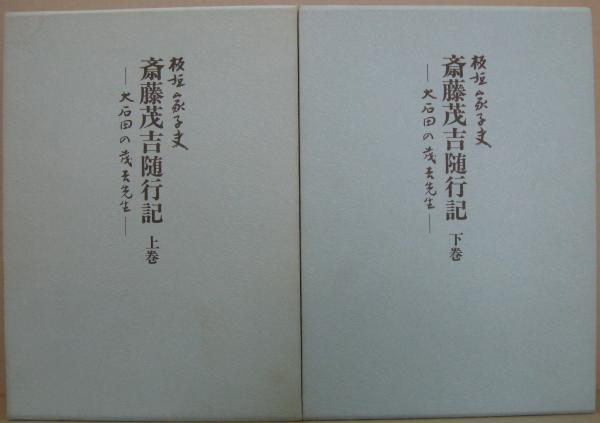 板垣家子夫
斎藤茂吉随行記
―大石田の茂吉先生―
上巻
板垣家子夫
斎藤茂吉随行記
―大石田の茂吉先生―
下巻